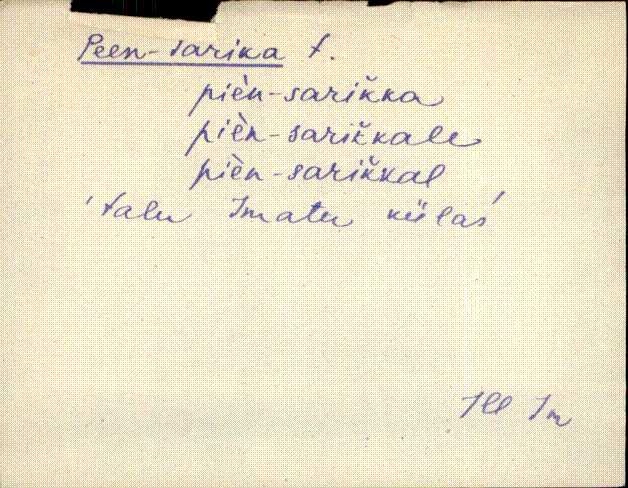 Peen-sarika t.
pièn-sarik̆ka
pièn-sarik̆kale
pièn-sarik̆kal
'talu Imatu külas'
Ill Im